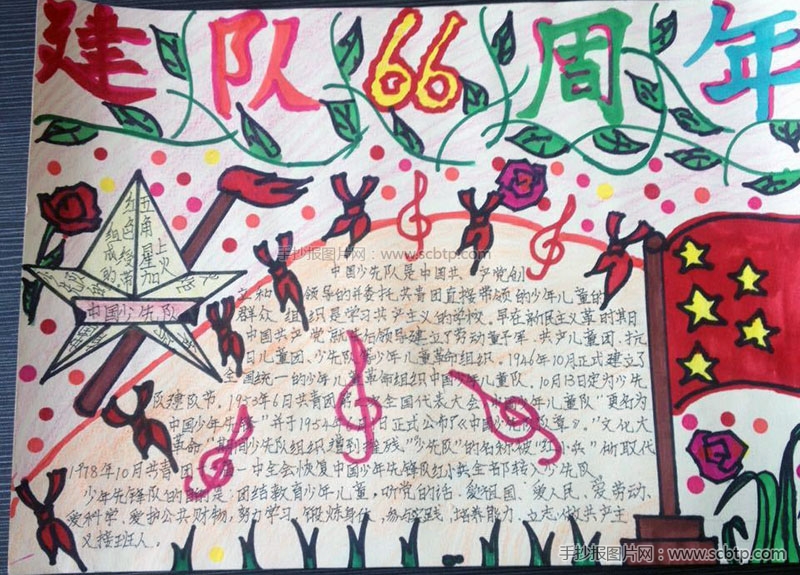 建队66周年
五角星加
上
红色
组成
的
中国少先队
手抄报图片网 : www.scbtp.com
中国少先队是中国共产党创
立和领导的并委托共青团直接带领的少年儿童的
群众组织是学习共产主义的学校。早在新民主义革时其日
中国共产党就先后领导建立了劳动童子军、共产儿童团、抗
日儿童团、少先队等少年儿童革命组织。1946年10月正式建立了
全国统一的少年儿童革命组织中国少年儿童队。10月13日定为少先
队建队节。1953年6月共青团第二次全国代表大会"少年儿童队"更名为
中国少年先锋"并于1954年 日正式公布了《中国少先队队章》。"文化大
革命"期间少先队组织遭到摧残"少先队"的名称被"红小兵"所取代
1978年10月共青团十届一中全会恢复中国少年先锋队 少先队
少年先锋队的目的是:团结教育少年儿童,听党的话、爱祖国、爱人民、爱劳动、
爱科学、爱护公共财物,努力学习,锻炼身体,参与实践,培养能力,立志做共产主
义接班人。
手抄报图片网:www.scbtp.com